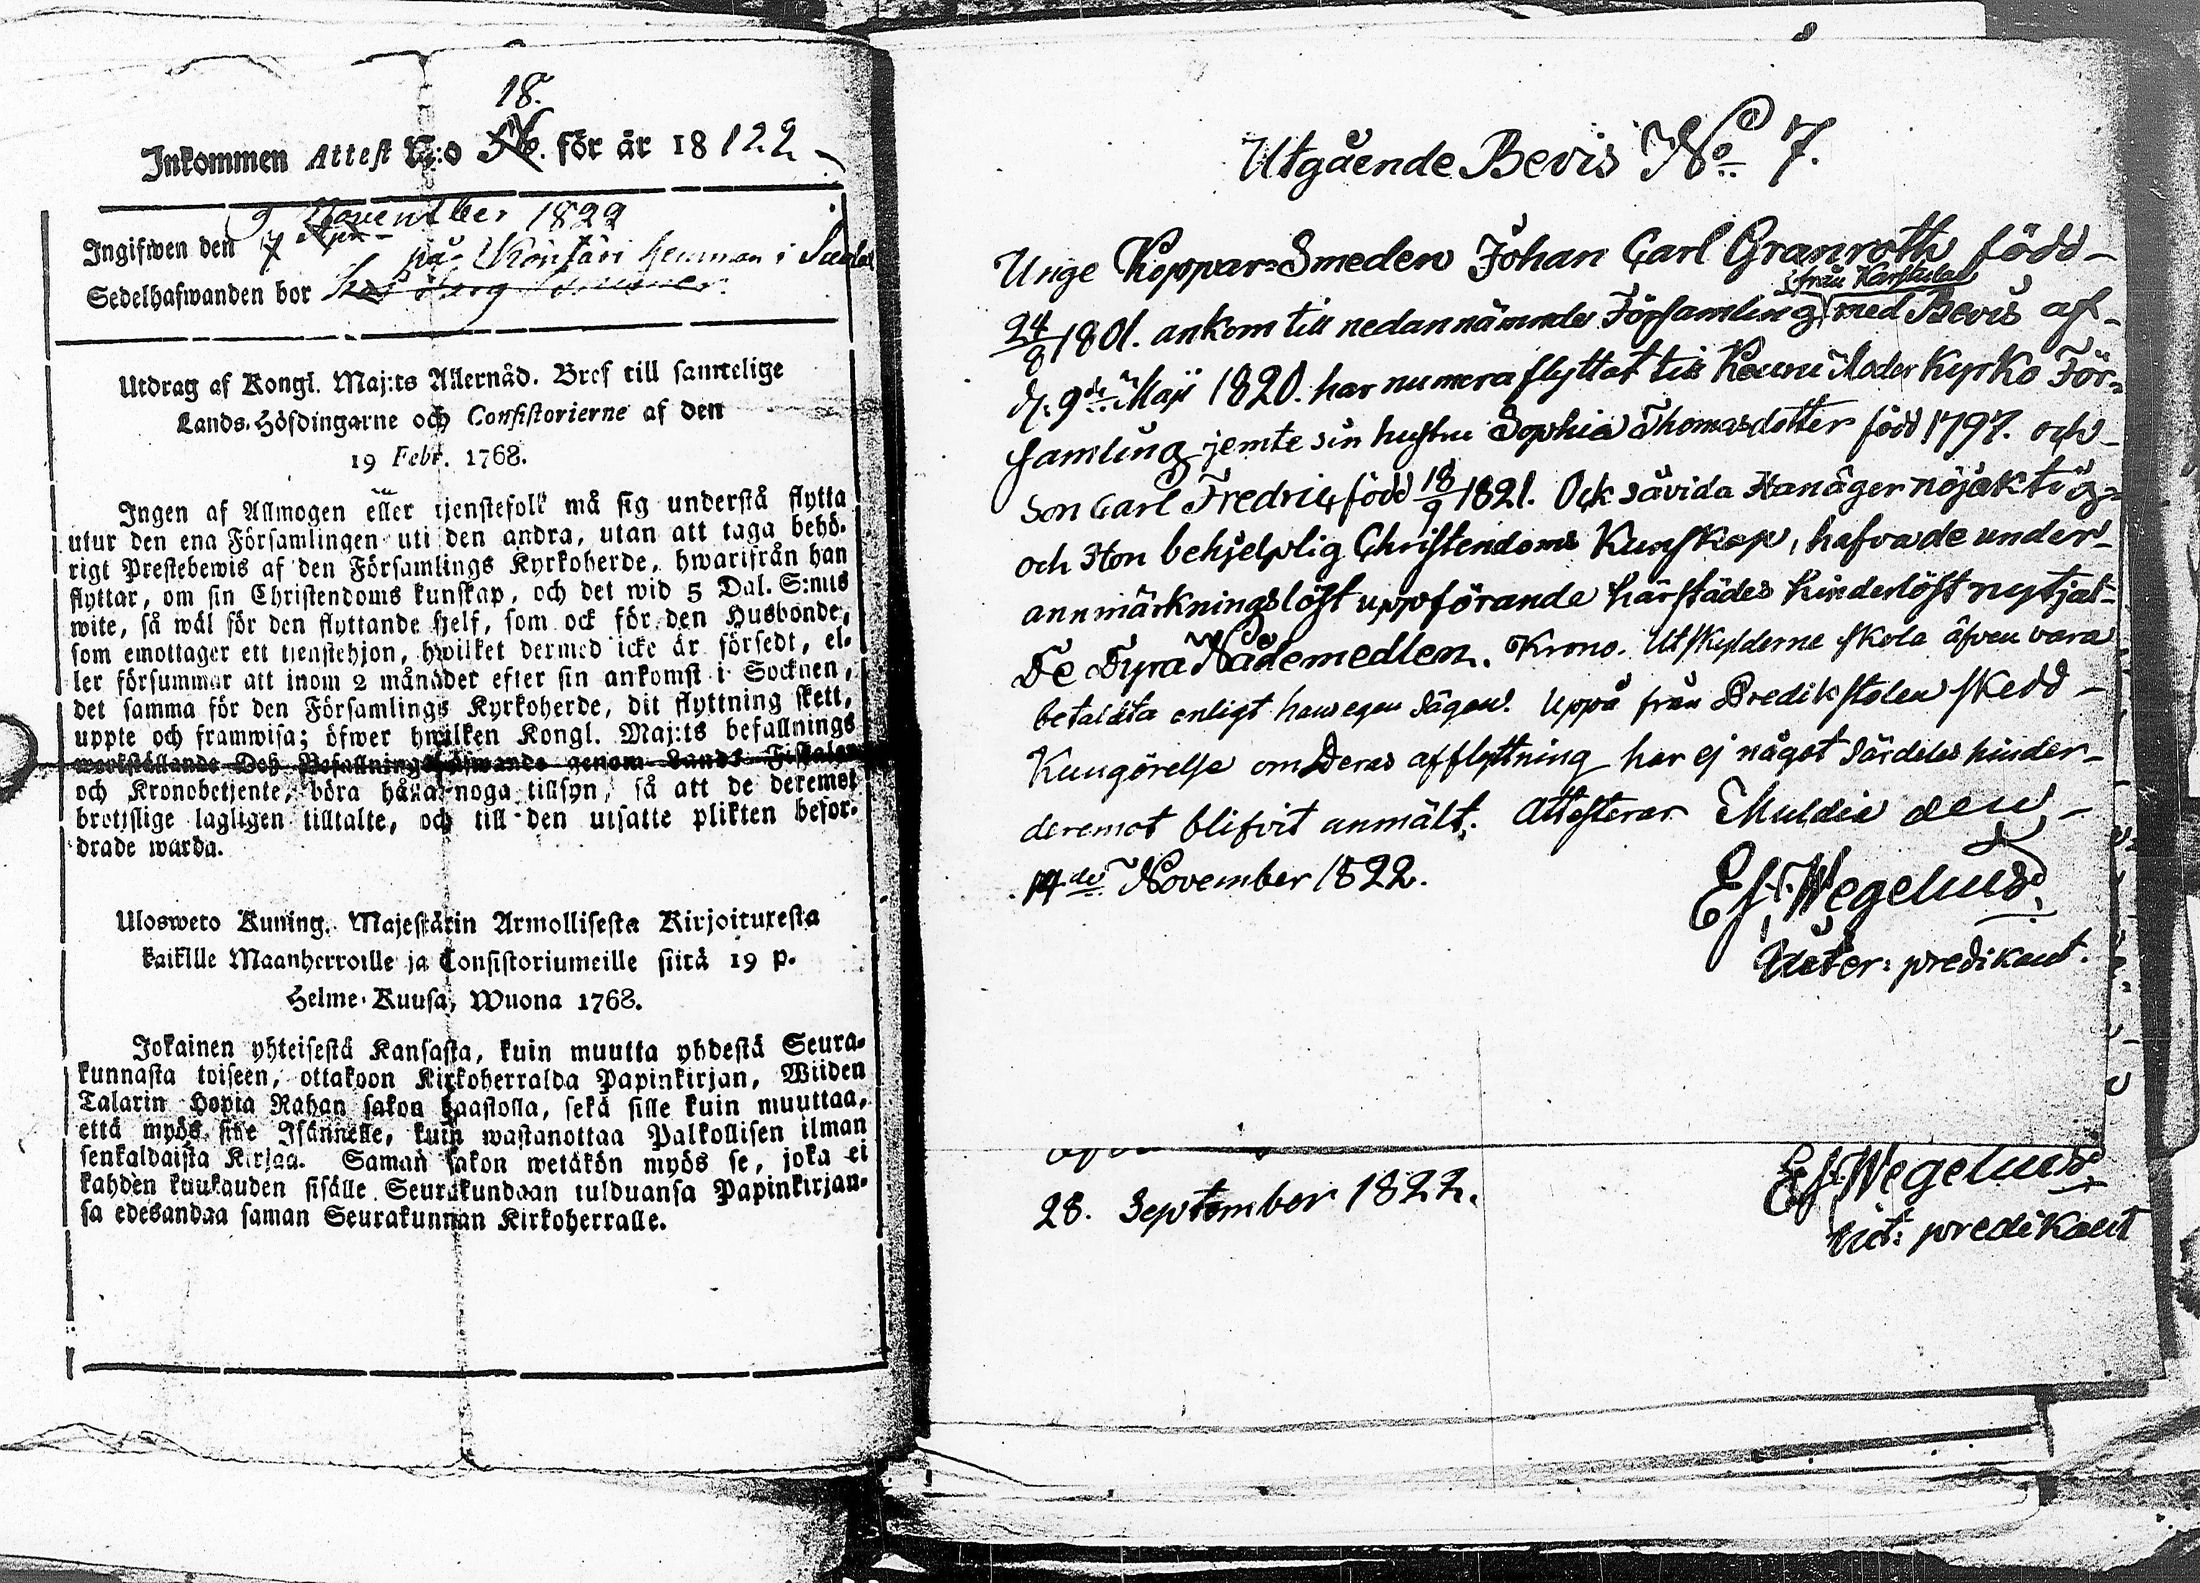 18.
Inkommen Attest N:o för år 18122
9 November 1822
Ingifwen den 7
på Köntäri hemman i
Sedelhafwanden bor
Utdrag af Kongl. Maj:ts Allernåd. Bref till samtelige
Lands-Höfdingarne och Consistorierne af den
19 Febr. 1768.
Ingen af Allmogen eller tjenstefolk må sig understå flytta
utur den ena Församlingen uti den andra, utan att taga behö-
rigt Prestebewis af den Församlings Kyrkoherde, hwarifrån han
flyttar, om sin Christendoms kunskap, och det wid 5 Dal. S:mts
wite, så wäl för den flyttande sjelf, som ock för den Husbonde,
som emottager ett tjenstehjon, hwilket dermed icke är försedt, el-
ler försummar att inom 2 månader efter sin ankomst i Socknen,
det samma för den Församlings Kyrkoherde, dit flyttning skett,
uppte och framwisa; öfwer hwilken Kongl. Maj:ts befallnings
werkställande Dess Befallningshafwande genom Lands-Fiskaler
och Kronobetjente, böra hålla noga tillsyn, så att de deremot
brottslige lagligen tilltalte, och till den utsatte plikten befor-
drade warda.
Ulosweto Kuning. Majestätin Armollisesta Kirjoituxesta
kaikille Maanherroille ja Consistoriumeille siitä 19 p.
Helme-Kuusa, Wuona 1768.
Jokainen yhteisestä Kansasta, kuin muutta yhdestä Seura-
kunnasta toiseen, ottakoon Kirkoherralda Papinkirjan, Wiiden
Talarin Hopia Rahan sakon haastolla, sekä sille kuin muuttaa,
että myös sille Isännelle, kuin wastanottaa Palkollisen ilman
senkaldaista Kirjaa. Saman sakon wetäkön myös se, joka ei
kahden kuukauden sisälle Seurakundaan tulduansa Papinkirjan-
sa edesandaa saman Seurakunnan Kirkoherralle.
Utgående Bevis No 7.
Unge Koppar=Smeden Johan Carl Granroth född
från Karstula
24/8 1801. ankom till nedannämnde Församling med Bevis af
d. 9de Maji 1820. har numera flyttat till Keuru Moder Kyrko För=
samling jemte sin hustru Sophia Thomasdotter född 1797. och
Son Carl Fredric, född 18/9 1821. Och såvida Han äger nöjaktig=
och Hon behjelplig Christendoms Kunskap, hafva de under
annmärkningslöst uppförande härstädes hinderlöst nytjat
De Dyra Nådemedlen. Krono. Utskylderne skola äfven vara
betaldta enligt hans egen sägen. Uppå från Predikstolen skedd
Kungörelse om Deras afflyttning har ej något särdeles hinder
deremot blifvit anmält. Attesterar Muldia den
14de November 1822.
Es. Wegelius
predikant.
28. September 1822.
Es. Wegelius
vict: predikant